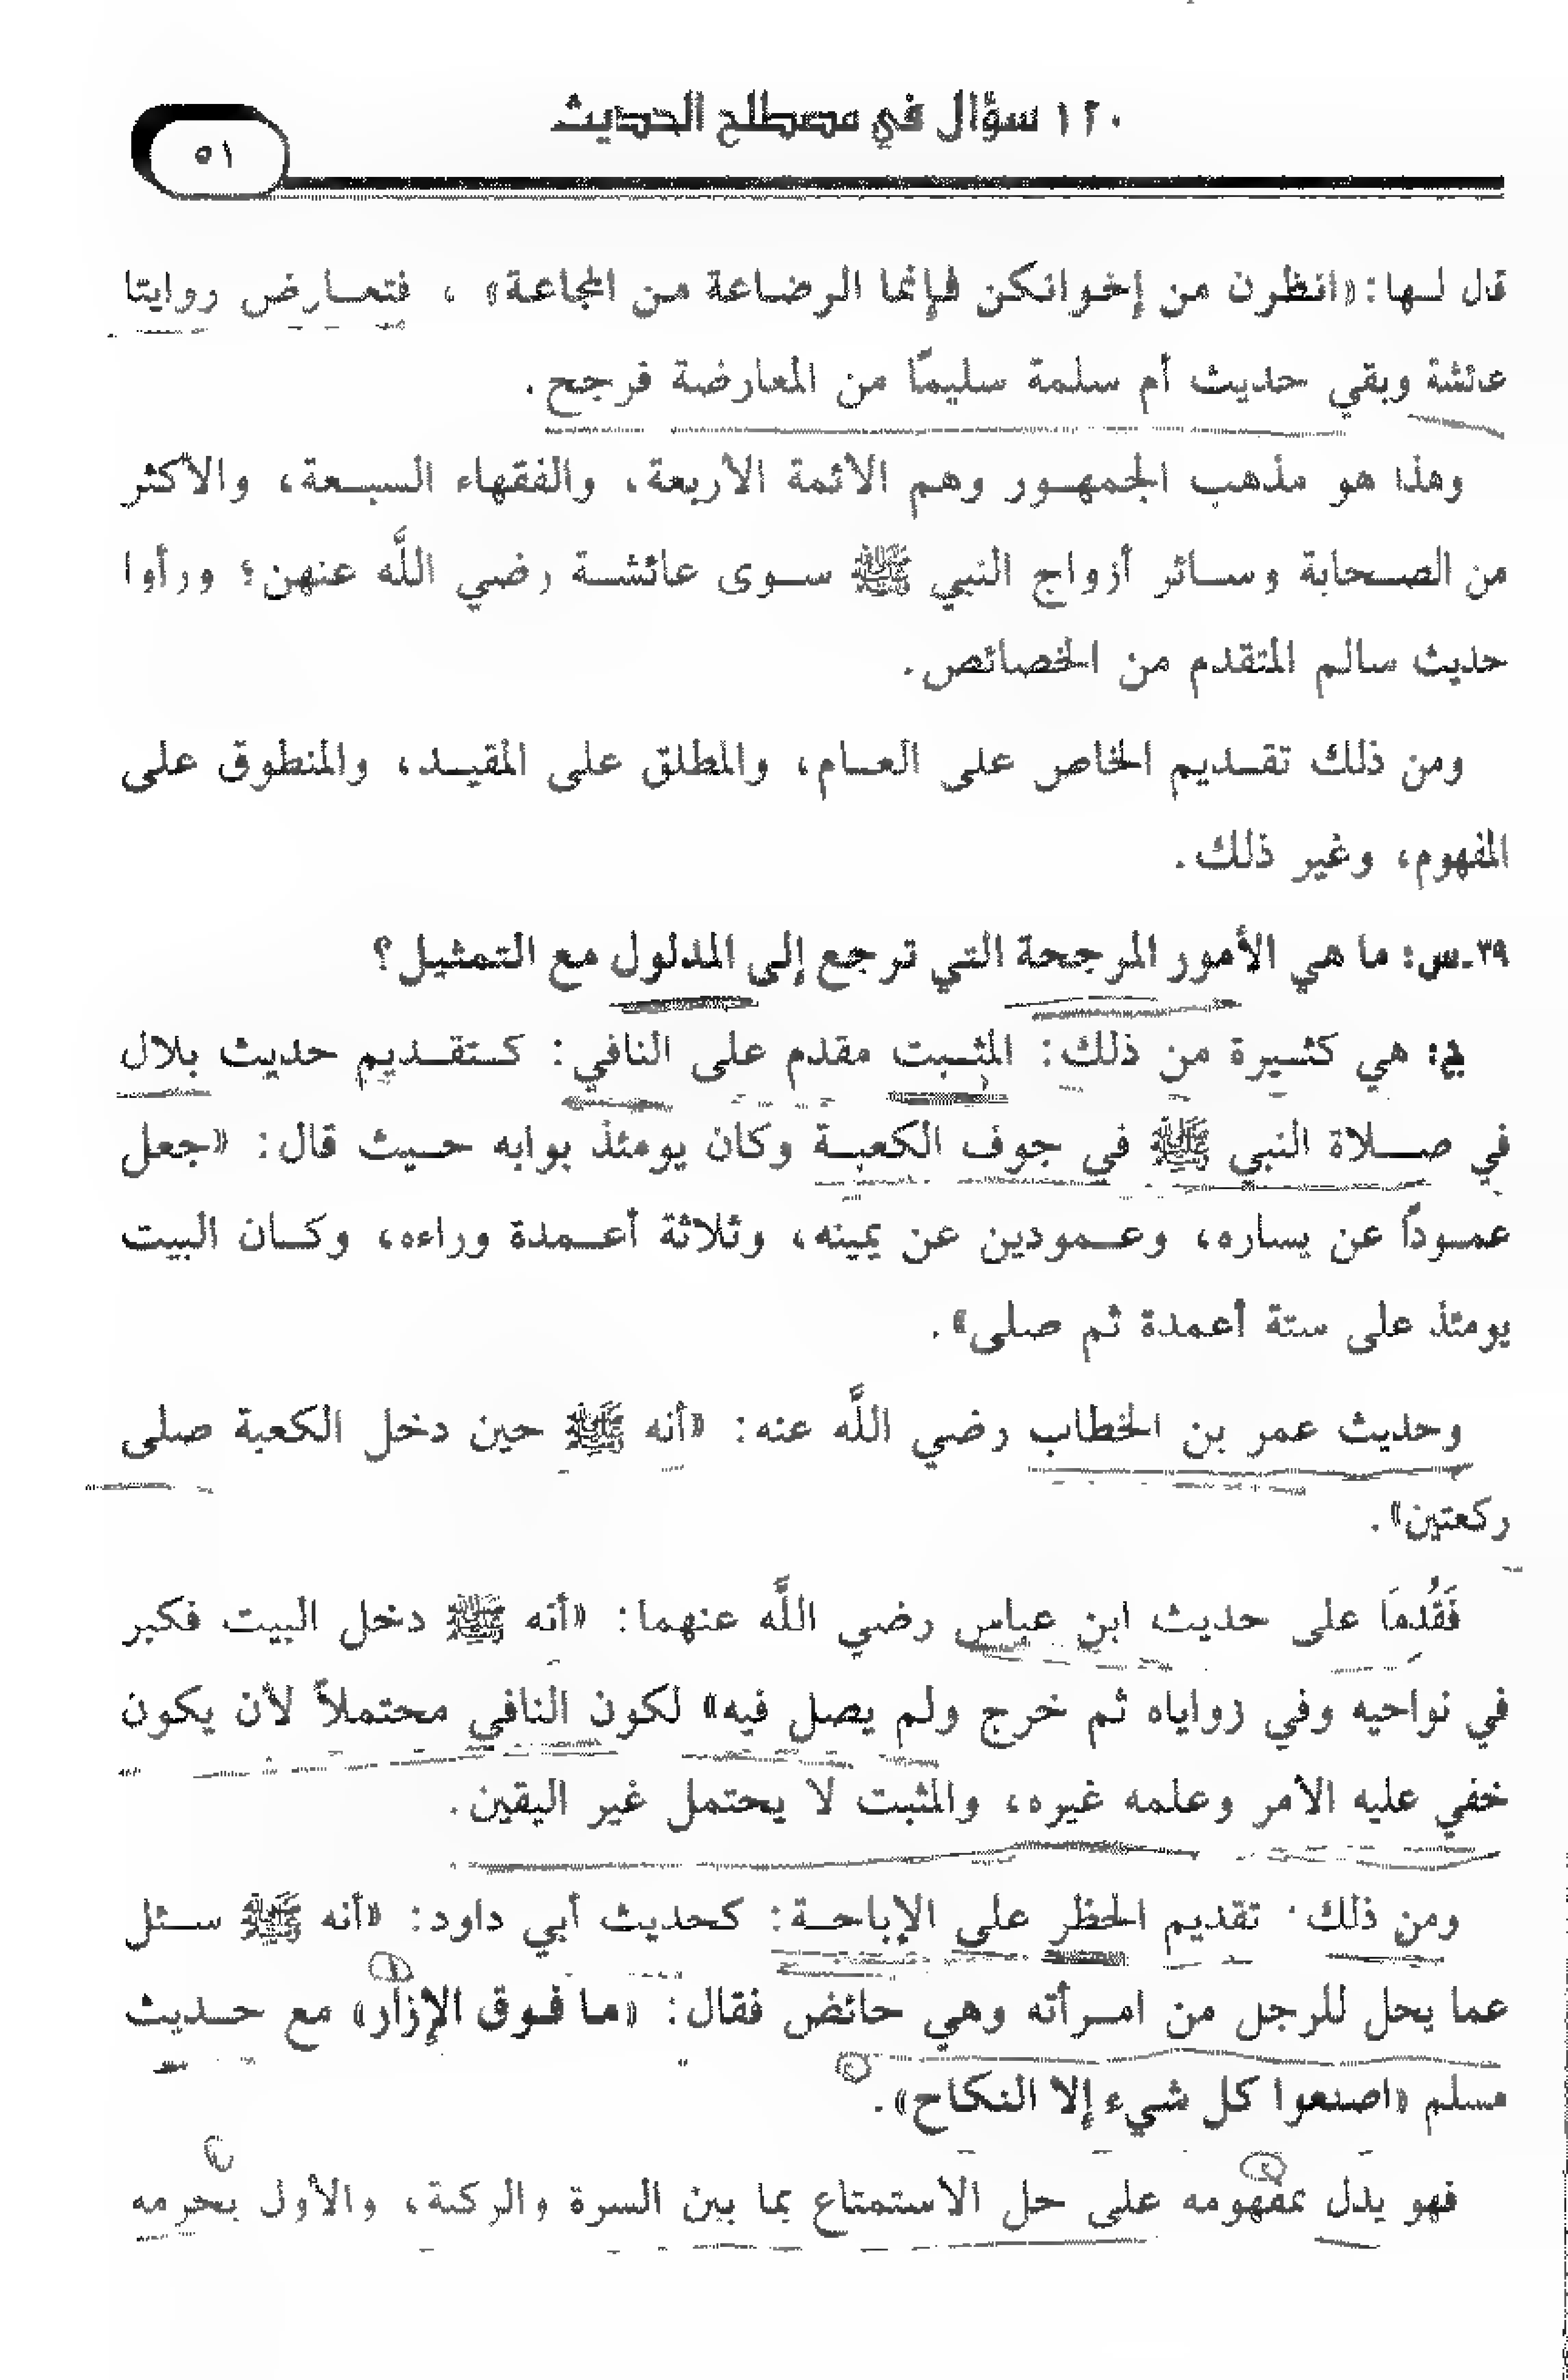 ١٢٠ سؤال في مصطلح الحديث
٥١
قال لها: «انظرن من إخوانكن فإنما الرضاعة من المجاعة» ، فتعارض روايتا
عائشة وبقي حديث أم سلمة سليمًا من المعارضة فرجح.
وهذا هو مذهب الجمهور وهم الأئمة الأربعة، والفقهاء السبعة، والأكثر
من الصحابة وسائر أزواج النبي ﷺ سوى عائشة رضي اللَّه عنهن؛ ورأوا
حديث سالم المتقدم من الخصائص.
ومن ذلك تقديم الخاص على العام، والمطلق على المقيد، والمنطوق على
المفهوم، وغير ذلك.
٣٩ـس: ما هي الأمور المرجحة التي ترجع إلى المدلول مع التمثيل؟
ج: هي كثيرة من ذلك: المثبت مقدم على النافي: كتقديم حديث بلال
في صلاة النبي ﷺ في جوف الكعبة وكان يومئذ بوابه حيث قال: «جعل
عمودًا عن يساره، وعمودين عن يمينه، وثلاثة أعمدة وراءه، وكان البيت
يومئذ على ستة أعمدة ثم صلى».
وحديث عمر بن الخطاب رضي اللَّه عنه: «أنه ﷺ حين دخل الكعبة صلى
ركعتين».
فَقُدمَا على حديث ابن عباس رضي اللَّه عنهما: «أنه ﷺ دخل البيت فكبر
في نواحيه وفي زواياه ثم خرج ولم يصل فيه» لكون النافي محتملاً لأن يكون
خفي عليه الأمر وعلمه غيره، والمثبت لا يحتمل غير اليقين.
ومن ذلك تقديم الحظر على الإباحة: كحديث أبي داود: «أنه ﷺ سئل
عما يحل للرجل من امرأته وهي حائض فقال: «ما فوق الإزار» مع حديث
مسلم «اصنعوا كل شيء إلا النكاح».
فهو يدل بمفهومه على حل الاستمتاع بما بين السرة والركبة، والأول يحرمه